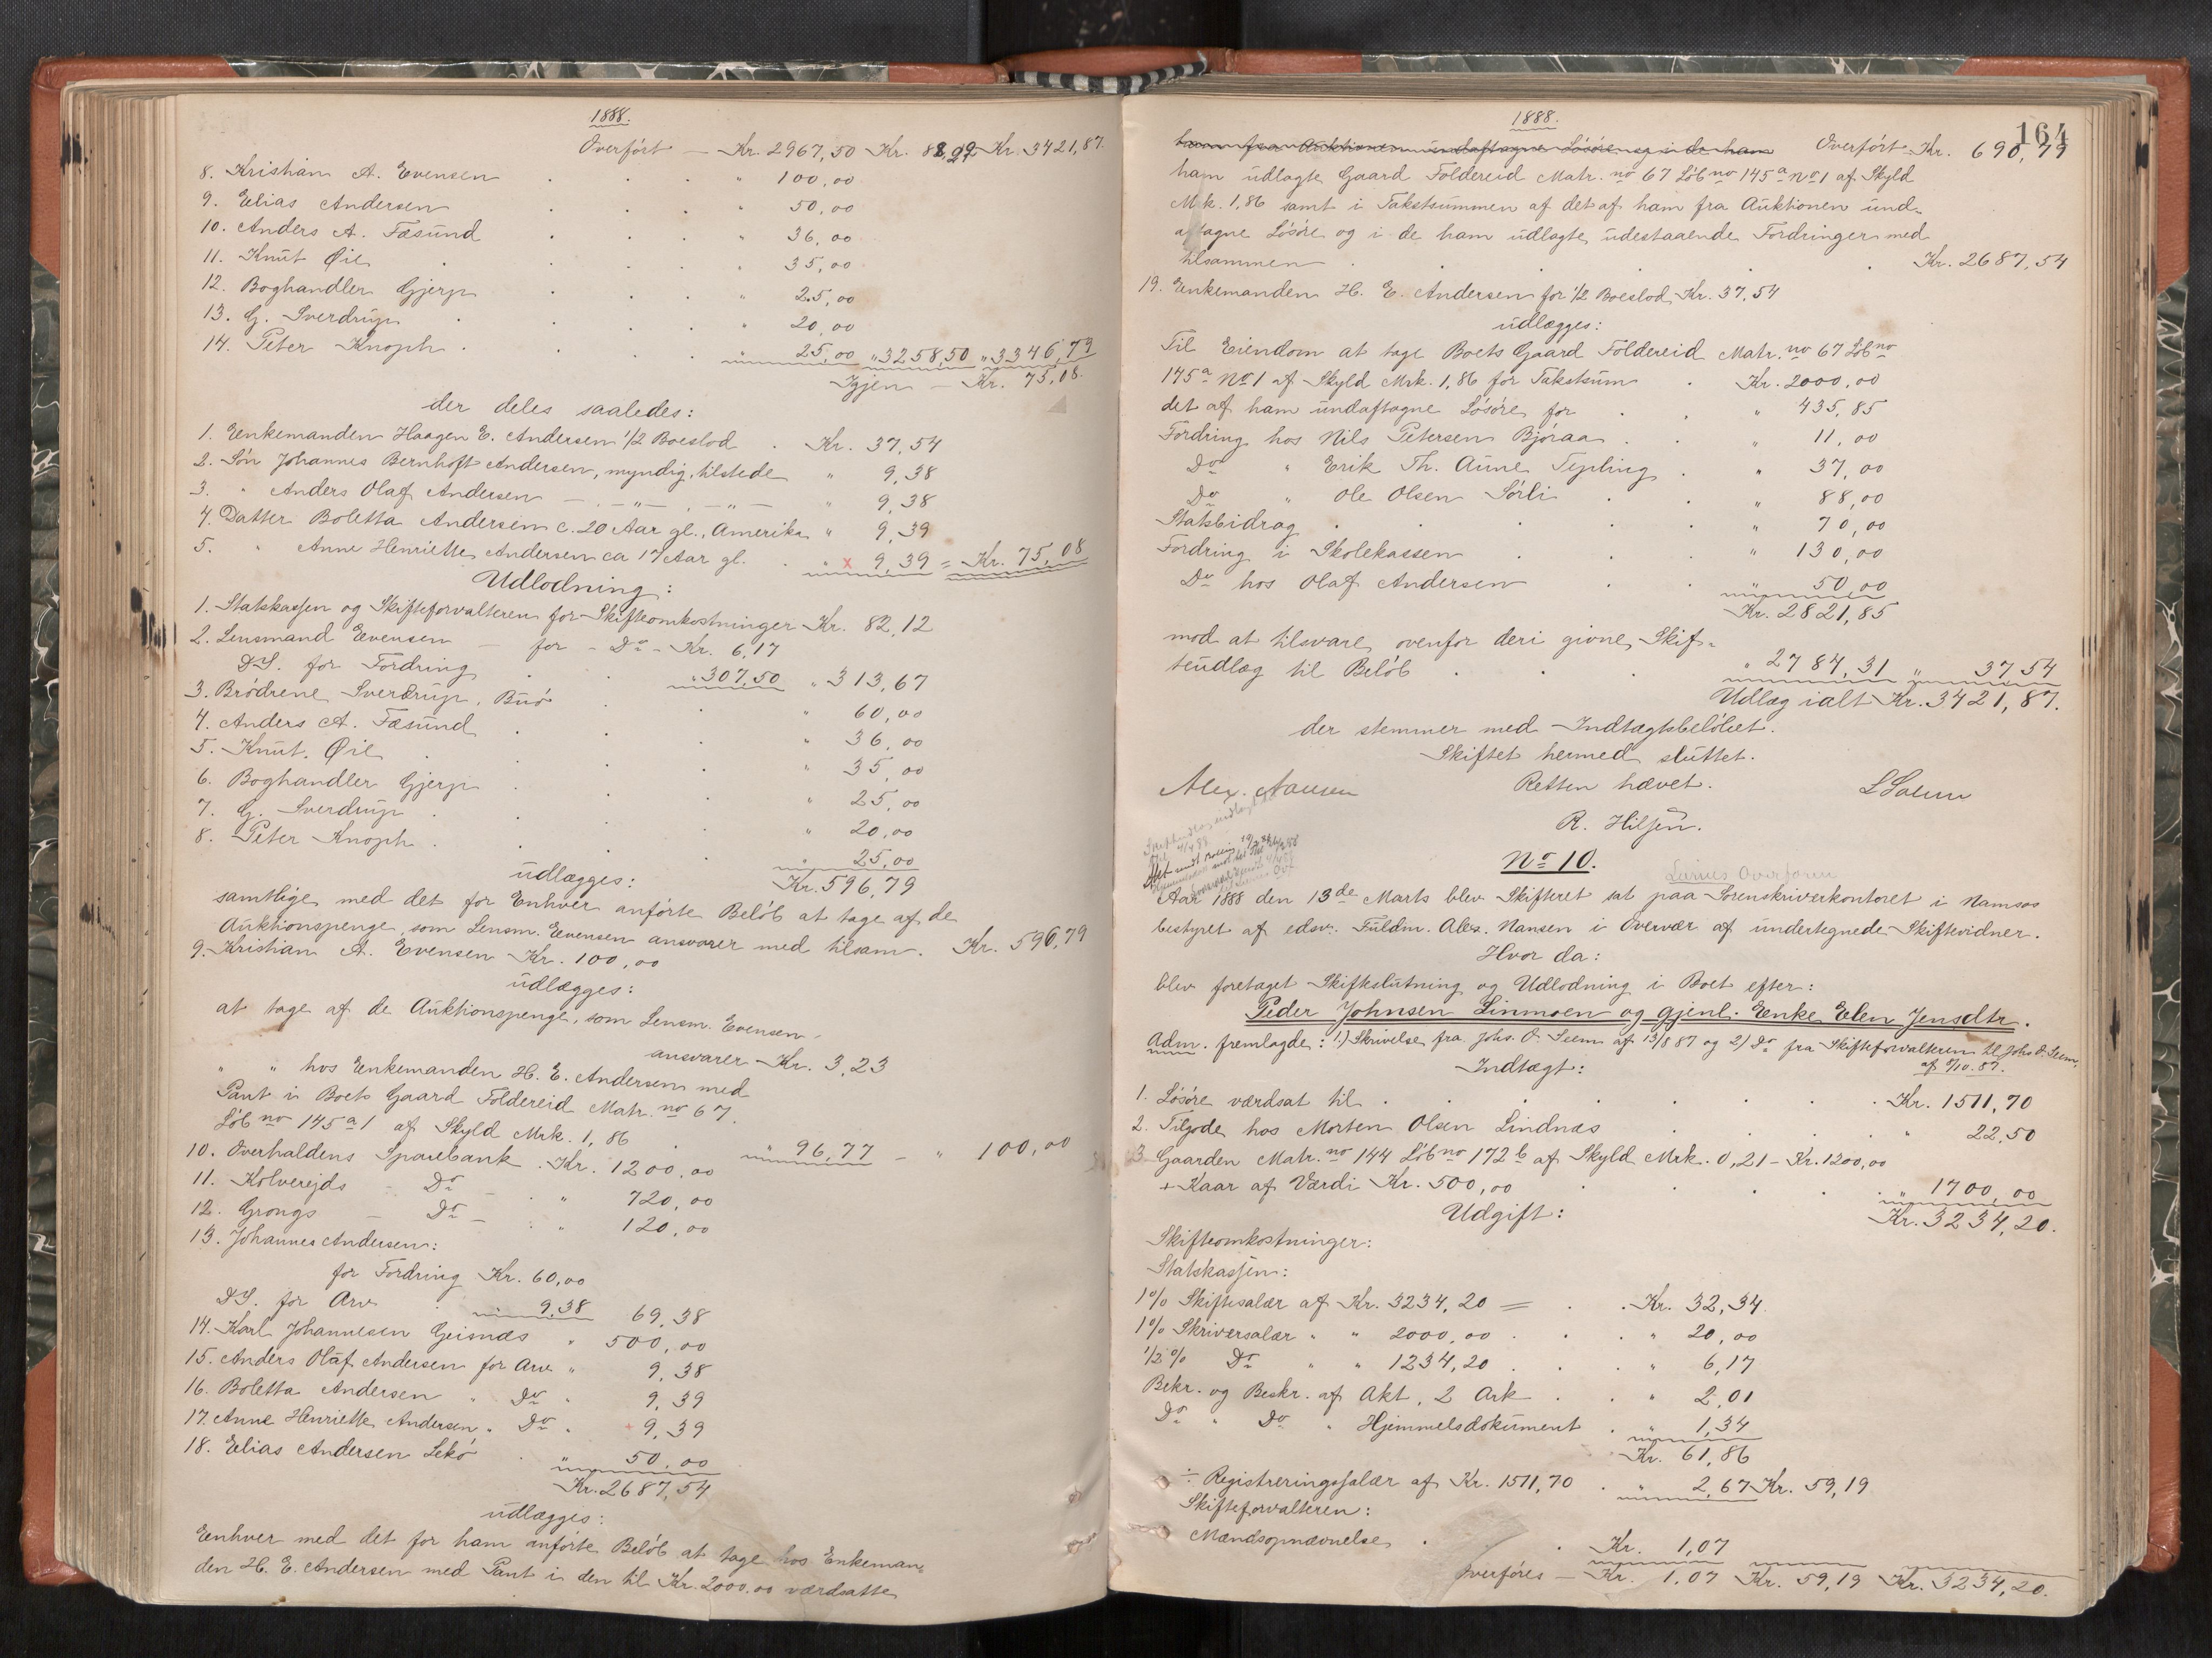 1888.
Overført — Kr. 2967,50 Kr. 88,29 Kr. 3421,87.
8. Kristian A. Evensen . . . " 100,00
9. Elias Andersen . . . " 50,00
10. Anders A. Fæsund . . . " 36,00
11. Knut Øie . . . " 35,00
12. Boghandler Gjerp . . . " 25,00
13. G. Sverdrup . . . " 20,00
14. Peter Knoph . . . " 25,00 " 3258,50 " 3346,79
Igjen — Kr. 75,08.
der deles saaledes:
1. Enkemanden Haagen E. Andersen 1/2 Boeslod . Kr. 37,54
2. Søn Johannes Bernhoft Andersen, myndig, tilstede " 9,38
3. " Anders Olaf Andersen — " — . — " — " 9,38
4. Datter Boletta Andersen c. 20 Aar gl., Amerika " 9,39
5. " Anne Henriette Andersen ca 17 Aar gl. . " x 9,39 = Kr. 75,08
Udlodning:
1. Statskassen og Skifteforvalteren for Skifteomkostninger Kr. 82,12
2. Lensmand Evensen — for - Do - Kr. 6,17
DS. for Fordring . . " 307,50 " 313,67
3. Brødrene Sverdrup, Buø . . " 60,00
4. Anders A. Fæsund . . . " 36,00
5. Knut Øie . . . " 35,00
6. Boghandler Gjerp . . . " 25,00
7. G. Sverdrup . . . " 20,00
8. Peter Knoph . . . " 25,00
udlægges: Kr. 596,79
samtlige med det for Enhver anførte Beløb at tage af de
Auktionspenge, som Lensm. Evensen ansvarer med tilsam. Kr. 596,79
9. Kristian A. Evensen Kr. 100,00
udlægges:
at tage af de Auktionspenge, som Lensm. Evensen
ansvarer Kr. 3,23
" " hos Enkemanden H. E. Andersen med
Pant i Boets Gaard Foldereid Matr. no 67
Løb no 145 a 1 af Skyld Mrk. 1,86 . " 96,77 — " 100,00
10. Overhaldens Sparebank . Kr. 1200,00
11. Kolvereids — Do — " 720,00
12. Grongs — Do — " 120,00
13. Johannes Andersen:
for Fordring Kr. 60,00
DS. for Arv . " 9,38 69,38
14. Karl Johannesen Geisnæs " 500,00
15. Anders Olaf Andersen for Arv " 9,38
16. Boletta Andersen " Do " 9,39
17. Anne Henriette Andersen " Do " + 9,39
18. Elias Andersen Lekø . " 50,00
Kr. 2687,54
udlægges:
Eenhver med det for ham anførte Beløb at tage hos Enkeman-
den H. E. Andersen med Pant i den til Kr. 2000.00 værdsatte
1888.
164
ham fra Auktionen undaftagne Løsøre og i de ham Overført Kr. 690,79
ham udlagte Gaard Foldereid Matr. no 67 Løb no 145 a No 1 af Skyld
Mrk. 1,86 samt i Takstsummen af det af ham fra Auktionen und-
aftagne Løsøre og i de ham udlagte udestaaende Fordringer med
tilsammen . . . . Kr. 2687,54
19. Enkemanden H. E. Andersen for 1/2 Boeslod Kr. 37,54
udlægges:
Til Eiendom at tage Boets Gaard Foldereid Matr. no 67 Løb no
145 a No 1 af Skyld Mrk. 1,86 for Takstsum . Kr. 2000,00
det af ham undaftagne Løsøre for . . " 435,85
Fordring hos Nils Petersen Bjøraa . . " 11,00
Do " Erik Th. Aune Tepling . " 37,00
Do " Ole Olsen Sørli . . " 88,00
Statsbidrag . . . . " 70,00
Fordring i Skolekassen . . . " 130,00
Do hos Olaf Andersen . . " 50,00
Kr. 2821,85
mod at tilsvare ovenfor deri givne Skif-
teudlæg til Beløb . . . " 2784,31 " 37,54
Udlæg ialt Kr. 3421,87.
der stemmer med Indtægtsbeløbet.
Skiftet hermed sluttet.
Alex. Nansen Retten hævet. L Solum
R. Hilsen.
No 10.
Aar 1888 den 13de Marts blev Skifteret sat paa Sorenskriverkontoret i Namsos
bestyret af edsv. Fuldm. Alex. Nansen i Overvær af undertegnede Skiftevidner.
Hvor da:
blev foretaget Skifteslutning og Udlodning i Boet efter:
Peder Johnsen Linmoen og gjenl. Enke Elen Jensdtr.
Adm. fremlagde: 1.) Skrivelse fra Johs. O. Seem af 13/8 87 og 2) Do fra Skifteforvalteren til Johs O. Seem,
Indtægt:
1. Løsøre værdsat til . . . . Kr. 1511,70
2. Tilgode hos Morten Olsen Lindnæs . . . " 22,50
3. Gaarden Matr. no 144 Løb no 172 b af Skyld Mrk. 0,21 - Kr. 1200,00
+ Kaar af Værdi Kr. 500,00 . . . . " 1700,00
Udgift: Kr. 3234,20.
Skifteomkostninger:
Statskassen:
1% Skiftesalær af Kr. 3234,20 = . . Kr. 32,34
1% Skriversalær " " 2000,00 . . . " 20,00
1/2 % Do " " 1234,20 . . . " 6,17
Bekr. og Beskr. af Akt, 2 Ark . . " 2,01
Do " Do " Hjemmelsdokument . " 1,34
Kr. 61,86
÷ Registreringssalær af Kr. 1511,70 . " 2,67 Kr. 59,19
Skifteforvalteren:
Mændsopnævnelse . . Kr. 1,07
Overføres — Kr. 1,07 Kr. 59,19 Kr. 3234,20.